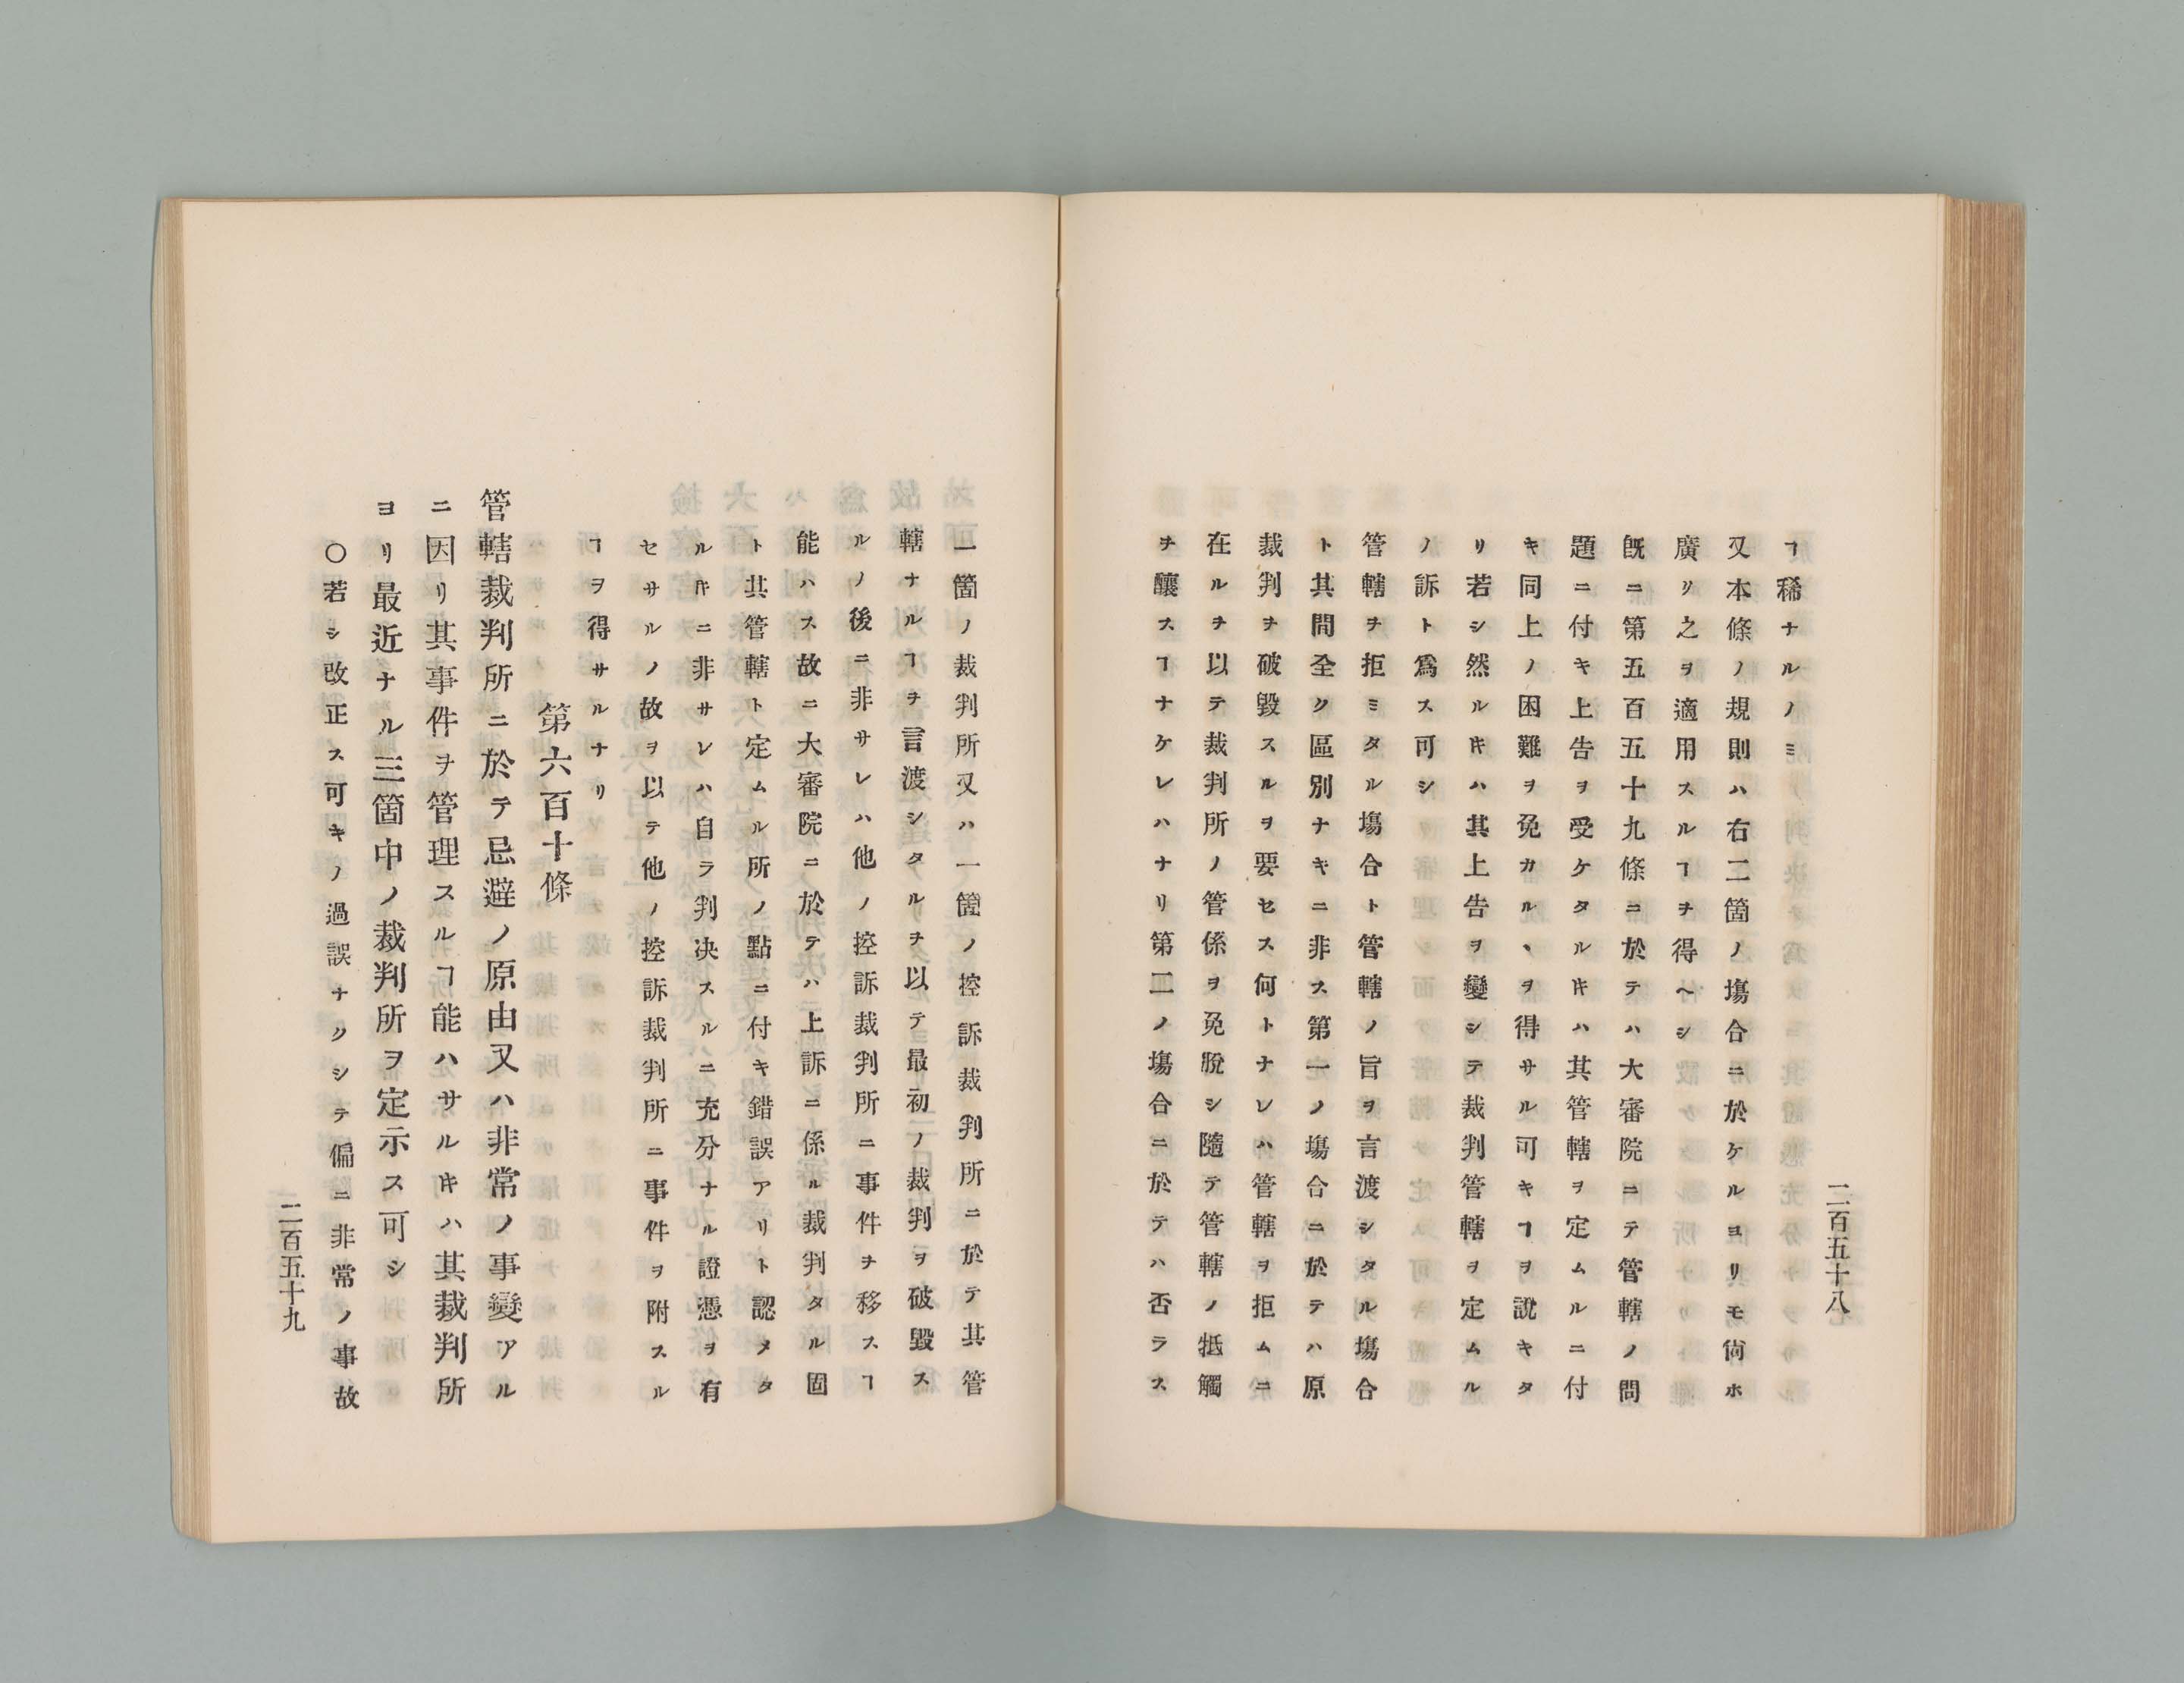 ヿ稀ナルノミ
又本條ノ規則ハ右二箇ノ塲合ニ於ケルヨリモ尙ホ
廣ク之ヲ適用スルヿヲ得ヘシ
既ニ第五百五十九條ニ於テハ大審院ニテ管轄ノ問
題ニ付キ上告ヲ受ケタルキハ其管轄ヲ定ムルニ付
キ同上ノ困難ヲ免カルヽヲ得サル可キヿヲ說キタ
リ若シ然ルキハ其上告ヲ變シテ裁判管轄ヲ定ムル
ノ訴ト爲ス可シ
管轄ヲ拒ミタル塲合ト管轄ノ旨ヲ言渡シタル塲合
ト其間全ク區別ナキニ非ス第一ノ塲合ニ於テハ原
裁判ヲ破毀スルヲ要セス何トナレハ管轄ヲ拒ムニ
在ルヲ以テ裁判所ノ管係ヲ免脫シ隨テ管轄ノ牴觸
ヲ釀スヿナケレハナリ第二ノ塲合ニ於テハ否ラス
二百五十八
一箇ノ裁判所又ハ一箇ノ控訴裁判所ニ於テ其管
轄ナルヿヲ言渡シタルヲ以テ最初ノ裁判ヲ破毀ス
ルノ後ニ非サレハ他ノ控訴裁判所ニ事件ヲ移スヿ
能ハス故ニ大審院ニ於テハ上訴ニ係ル裁判タル固
ト其管轄ト定ムル所ノ點ニ付キ錯誤アリト認メタ
ルキニ非サレハ自ラ判決スルニ充分ナル證憑ヲ有
セサルノ故ヲ以テ他ノ控訴裁判所ニ事件ヲ附スル
ヿヲ得サルナリ
第六百十條
管轄裁判所ニ於テ忌避ノ原由又ハ非常ノ事變アル
ニ因リ其事件ヲ管理スルヿ能ハサルキハ其裁判所
ヨリ最近ナル三箇中ノ裁判所ヲ定示ス可シ
〇若シ改正ス可キノ過誤ナクシテ偏ニ非常ノ事故
二百五十九